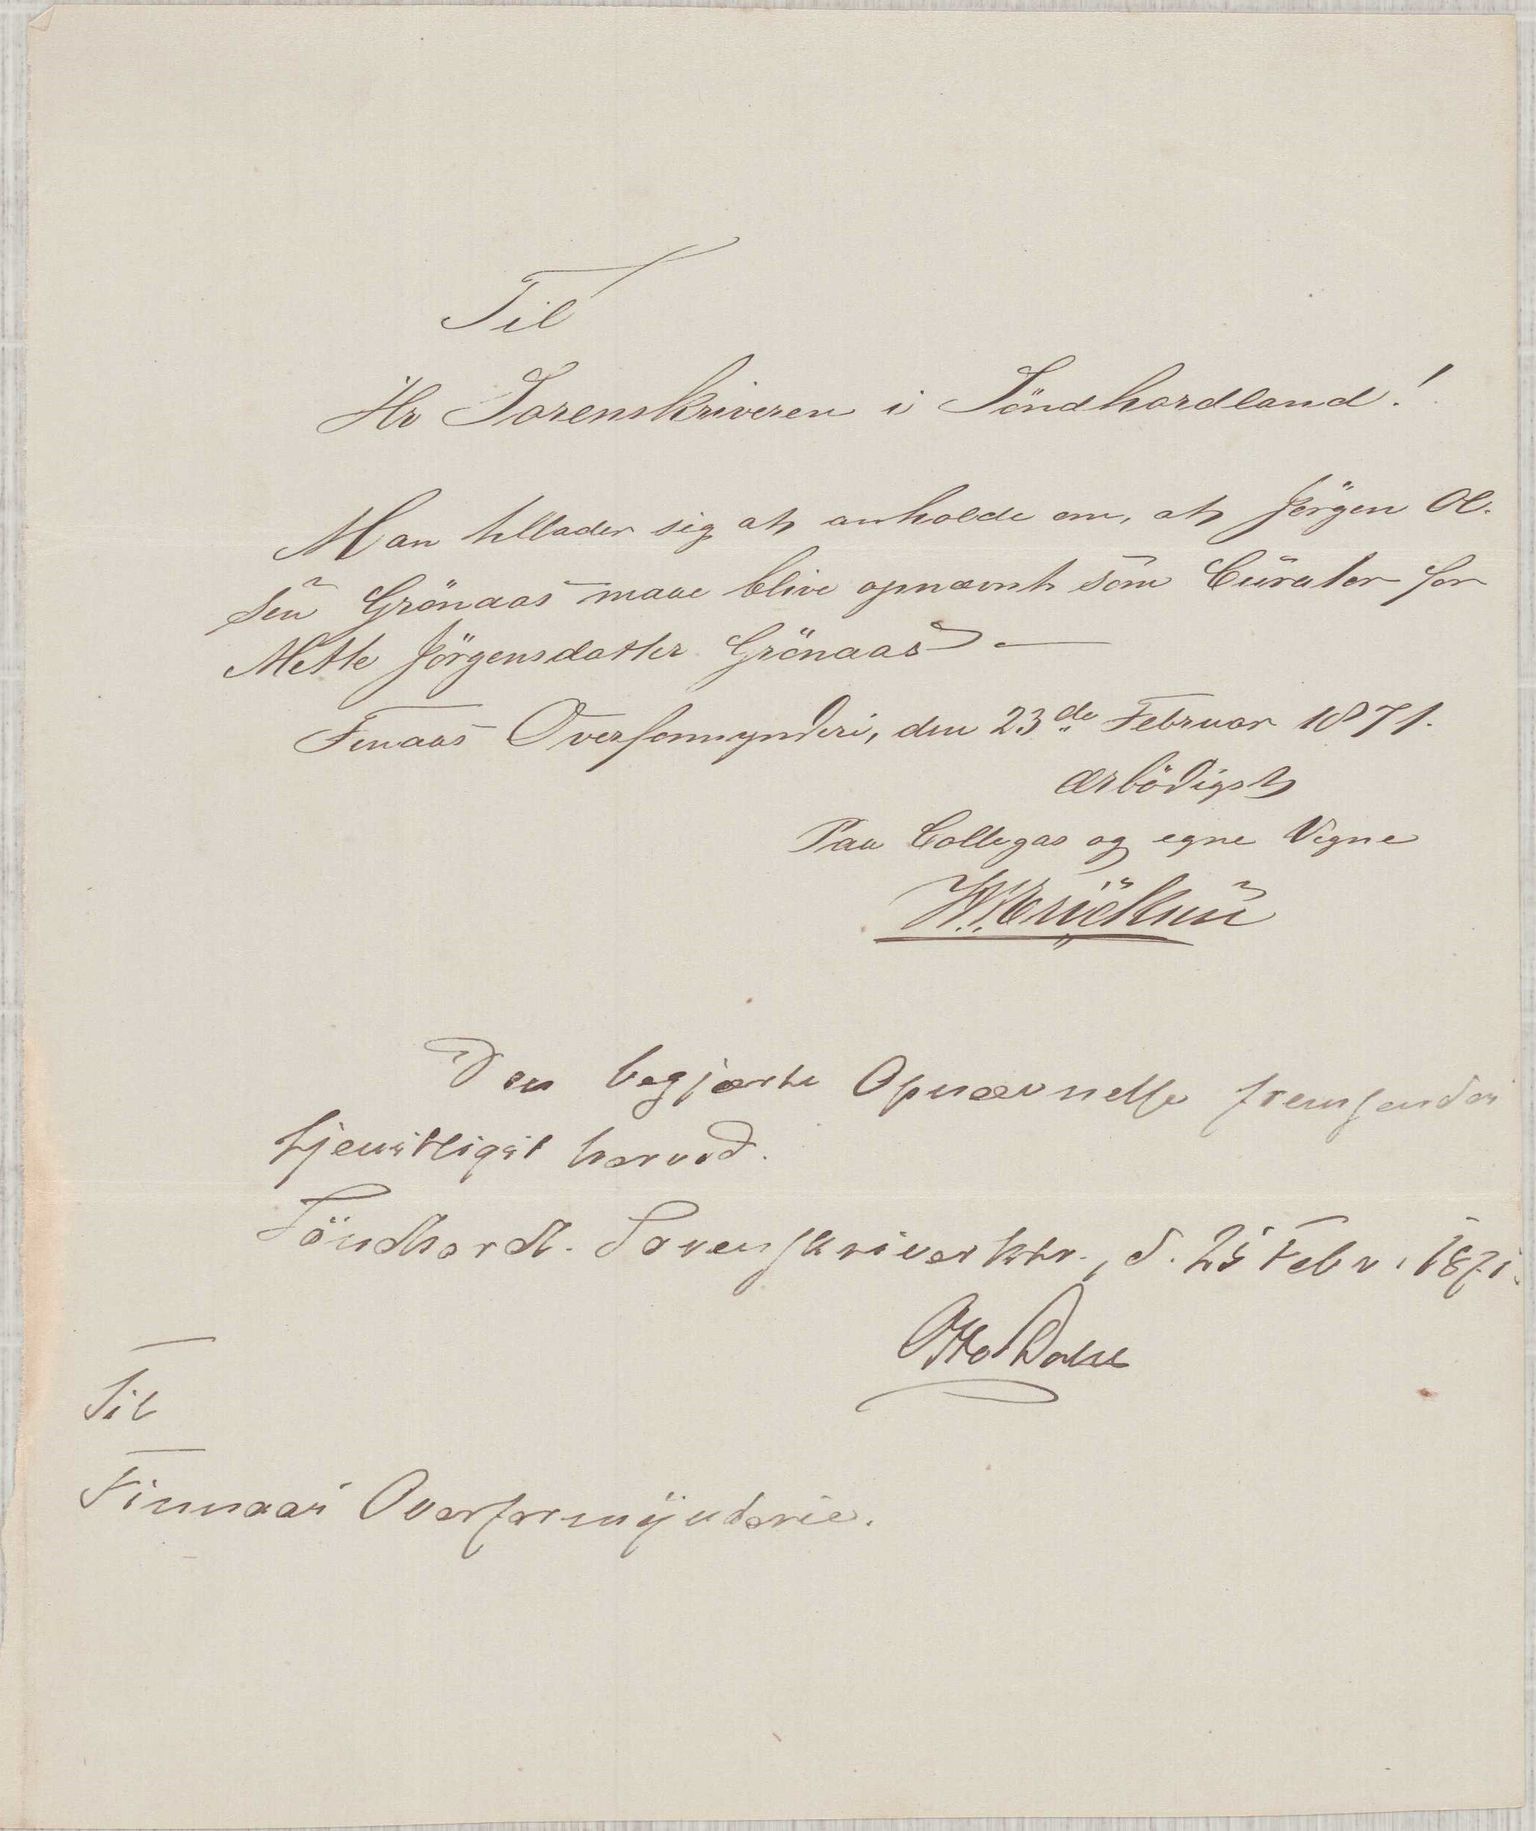 Til
Hr Sorenskriveren i Söndhordland!
Man tillader sig at anholde om, at Jörgen Ol-
sen Grönaas maae blive opnævnt som Curator for
Mette Jörgensdatter Grönaas. —
Finaas Overformynderi, den 23de Februar 1871.
Ærbödigst
Paa Collegas og egne Vegne
Den begjærte Opnævnelse fremsendes
tjenstligst herved.
Söndhordl. Sorenskriverktr., d. 25 Febr. 1871.
Otto Dahl
Til
Finnaas Overformynderie.